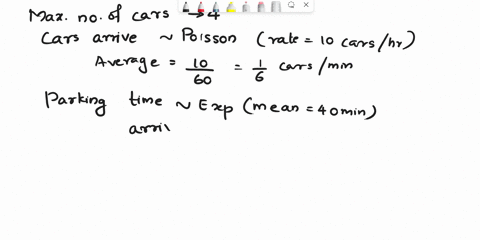 Max. no. of cars → 4
Cars arrive ~ Poisson (rate = 10 cars/hr)
Average = 10/60 = 1/6 cars/mm
Parking time ~ Exp (mean = 40 min)
arri